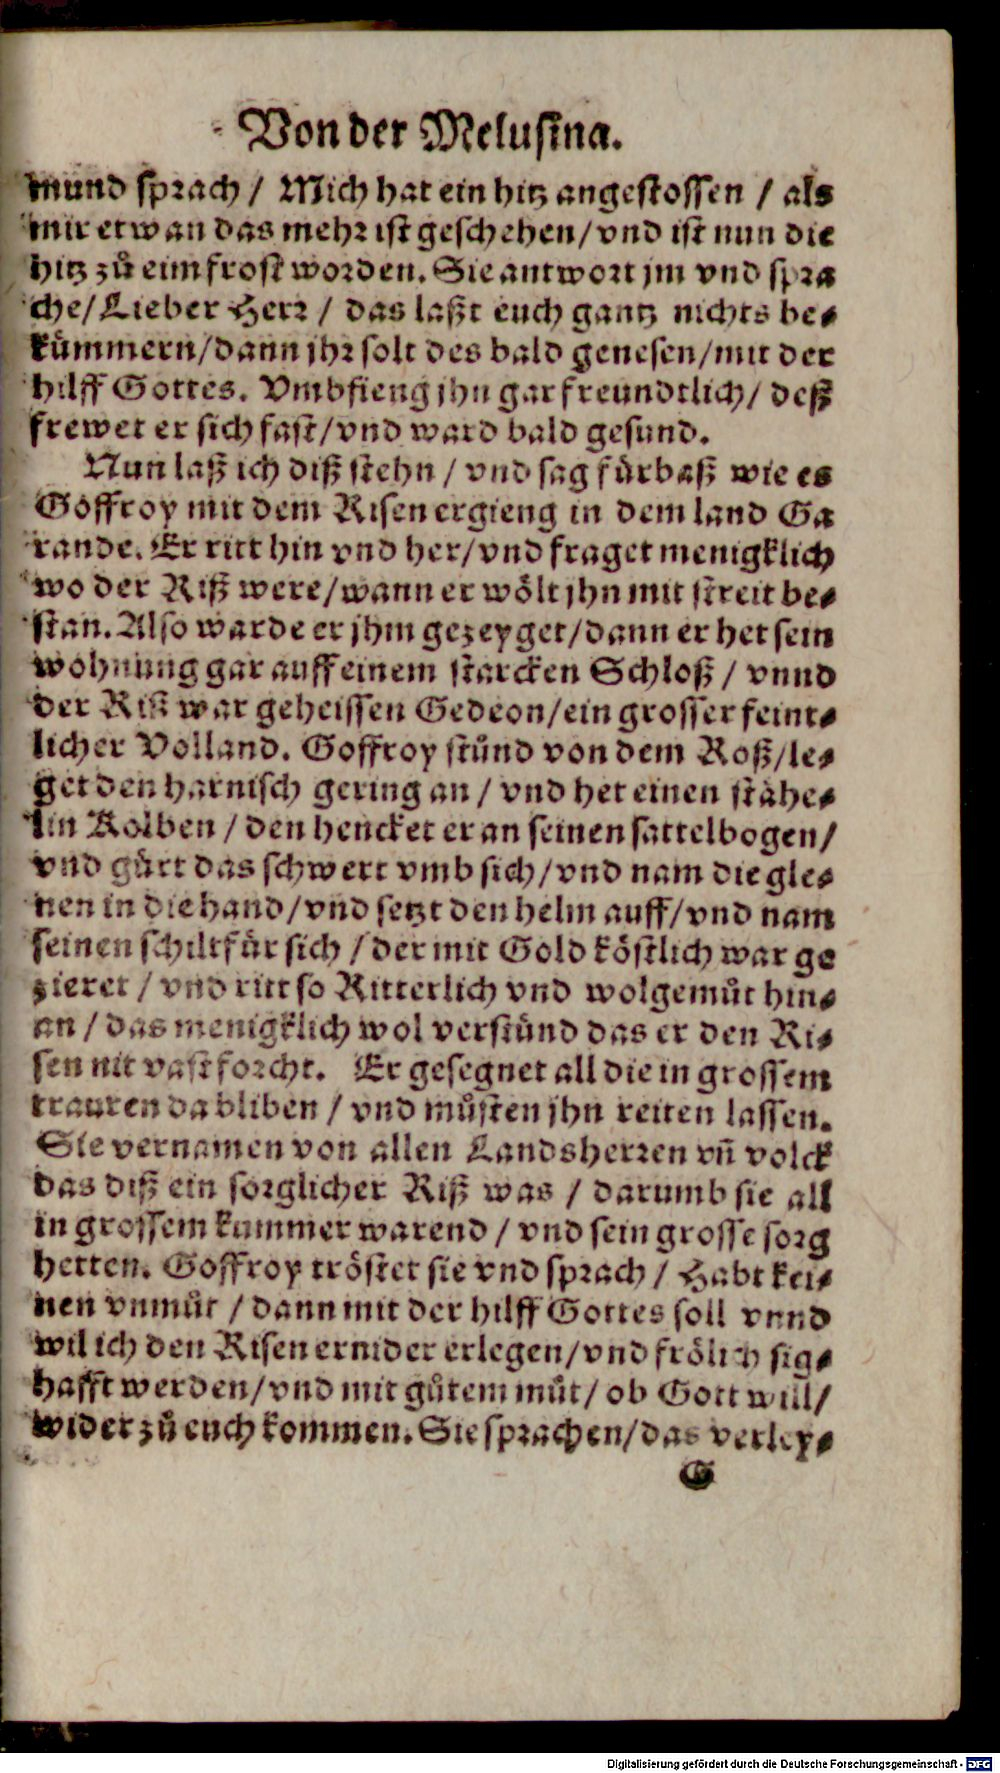 Von der Melusina.
mund sprach / Mich hat ein hitz angestossen / als
mir etwan das mehr ist geschehen / vnd ist nun die
hitz zů eim frost worden. Sie antwort jm vnd spra
che / Lieber Herr / das laßt euch gantz nichts be-
kümmern / dann jhr solt des bald genesen / mit der
hilff Gottes. Vmbfieng jhn gar freundtlich / deß
frewet er sich fast / vnd ward bald gesund.
Nun laß ich diß stehn / vnd sag fürbaß wie es
Goffroy mit dem Risen ergieng in dem land Ga
rande. Er ritt hin vnd her / vnd fraget menigklich
wo der Riß were / wann er wölt jhn mit streit be-
stan. Also warde er jhm gezeyget / dann er het sein
wohnung gar auff einem starcken Schloß / vnnd
der Riß war geheissen Gedeon / ein grosser feint-
licher Volland. Goffroy stůnd von dem Roß / le-
get den harnisch gering an / vnd het einen stähe-
lin Kolben / den hencket er an seinen sattelbogen /
vnd gürt das schwert vmb sich / vnd nam die gle-
nen in die hand / vnd setzt den helm auff / vnd nam
seinen schilt für sich / der mit Gold köstlich war ge
zieret / vnd ritt so Ritterlich vnd wolgemůt hin-
an / das menigklich wol verstůnd das er den Ri-
sen nit vast forcht. Er gesegnet all die in grossem
trauren da bliben / vnd můsten jhn reiten lassen.
Sie vernamen von allen Landsherren vñ volck
das diß ein sorglicher Riß was / darumb sie all
in grossem kummer warend / vnd sein grosse sorg
hetten. Goffroy tröstet sie vnd sprach / Habt kei-
nen vnmůt / dann mit der hilff Gottes soll vnnd
wil ich den Risen ernider erlegen / vnd frölich sig-
hafft werden / vnd mit gůtem můt / ob Gott will /
wider zů euch kommen. Sie sprachen / das verley-
G
Digitalisierung gefördert durch die Deutsche Forschungsgemeinschaft - DFG